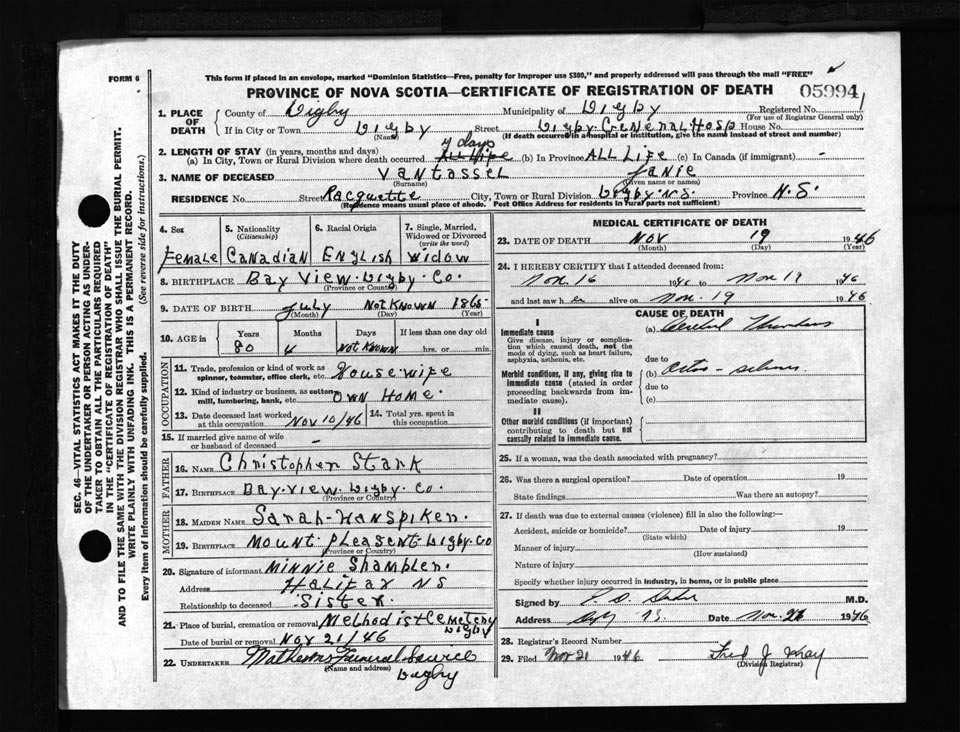 FORM 6
This form if placed in an envelope, marked "Dominion Statistics—Free, penalty for improper use $300," and properly addressed will pass through the mail "FREE"
PROVINCE OF NOVA SCOTIA—CERTIFICATE OF REGISTRATION OF DEATH 059941
SEC. 46—VITAL STATISTICS ACT MAKES IT THE DUTY
OF THE UNDERTAKER OR PERSON ACTING AS UNDER-
TAKER TO OBTAIN ALL THE PARTICULARS REQUIRED
IN THE "CERTIFICATE OF REGISTRATION OF DEATH"
AND TO FILE THE SAME WITH THE DIVISION REGISTRAR WHO SHALL ISSUE THE BURIAL PERMIT.
WRITE PLAINLY WITH UNFADING INK. THIS IS A PERMANENT RECORD.
Every item of information should be carefully supplied. (See reverse side for instructions.)
1. PLACE OF DEATH County of Digby Municipality of Digby Registered No.
(For use of Registrar General only)
If in City or Town Digby Street Digby General Hosp House No.
(Name) (If death occurred in a hospital or institution, give the name instead of street and number)
2. LENGTH OF STAY (in years, months and days) 4 days
(a) In City, Town or Rural Division where death occurred All Life (b) In Province ALL LIFE (c) In Canada (if immigrant) -
3. NAME OF DECEASED VanTassel Janie
(Surname) (Given name or names)
RESIDENCE No. Street Racquette City, Town or Rural Division Digby N.S Province N.S.
(Residence means usual place of abode. Post Office Address for residents in rural parts not sufficient)
4. Sex 5. Nationality (Citizenship) 6. Racial Origin 7. Single, Married, Widowed or Divorced (write the word)
Female Canadian English Widow
8. BIRTHPLACE Bay View. Digby Co.
(Province or Country)
9. DATE OF BIRTH July Not Known 1865
(Month) (Day) (Year)
10. AGE in Years Months Days If less than one day old
80 4 Not Known hrs. or min.
OCCUPATION
11. Trade, profession or kind of work as spinner, teamster, office clerk, etc. Housewife
12. Kind of industry or business, as cotton mill, lumbering, bank, etc. Own Home.
13. Date deceased last worked at this occupation Nov 10/46 14. Total yrs. spent in this occupation
15. If married give name of wife or husband of deceased -
FATHER
16. NAME Christopher Stark
17. BIRTHPLACE Bay View. Digby. Co.
(Province or Country)
MOTHER
18. MAIDEN NAME Sarah Hanspiker.
19. BIRTHPLACE Mount Pleasent Digby Co
(Province or Country)
20. Signature of informant Minnie Shambler.
Address Halifax NS
Relationship to deceased Sister.
21. Place of burial, cremation or removal Methodist Cemetery Digby
Date of burial or removal Nov 21/46
22. UNDERTAKER Funeral Digby
(Name and address)
MEDICAL CERTIFICATE OF DEATH
23. DATE OF DEATH Nov 19 1946
(Month) (Day) (Year)
24. I HEREBY CERTIFY that I attended deceased from:
Nov. 16 1946 to Nov 19 1946
and last saw h er alive on Nov. 19 1946
CAUSE OF DEATH
I
Immediate cause (a) Cerebral
Give disease, injury or complication which caused death, not the mode of dying, such as heart failure, asphyxia, asthenia, etc.
due to
Morbid conditions, if any, giving rise to immediate cause (stated in order proceeding backwards from immediate cause). (b)
due to
(c)
II
Other morbid conditions (if important) contributing to death but not causally related to immediate cause.
25. If a woman, was the death associated with pregnancy?
26. Was there a surgical operation? Date of operation 19
State findings Was there an autopsy?
27. If death was due to external causes (violence) fill in also the following:—
Accident, suicide or homicide? Date of injury 19
(State which)
Manner of injury
(How sustained)
Nature of injury
Specify whether injury occurred in industry, in home, or in public place
Signed by M.D.
Address Date Nov. 1946
28. Registrar's Record Number
29. Filed Nov 21 1946 Fred J
(Division Registrar)